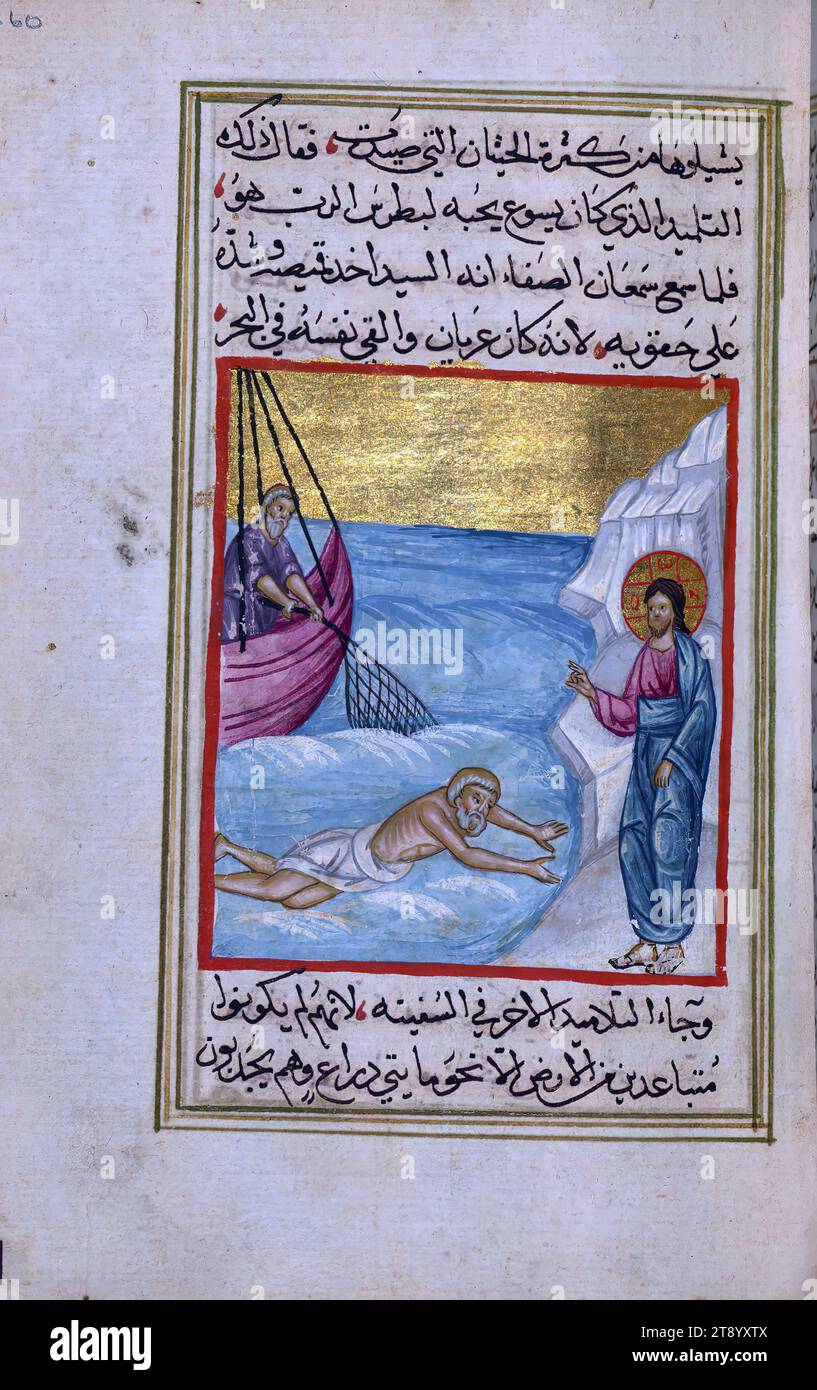 60
يشيلوها من كثرة الحيتان التي صيدت، فقال ذلك
التلميد الذي كان يسوع يحبه لبطرس الرب هو،
فلما سمع سمعان الصفاء انه السيد اخد قميصه وشده
على حقويه، لانه كان عريان والقي نفسه في البحر
وجاء التلاميد الاخر في السفينه، لانهم لم يكونوا
متباعدين من الارض الا نحو مايتي دراع وهم يجدبون
alamy
Image ID: 2T8YXTX
www.alamy.com